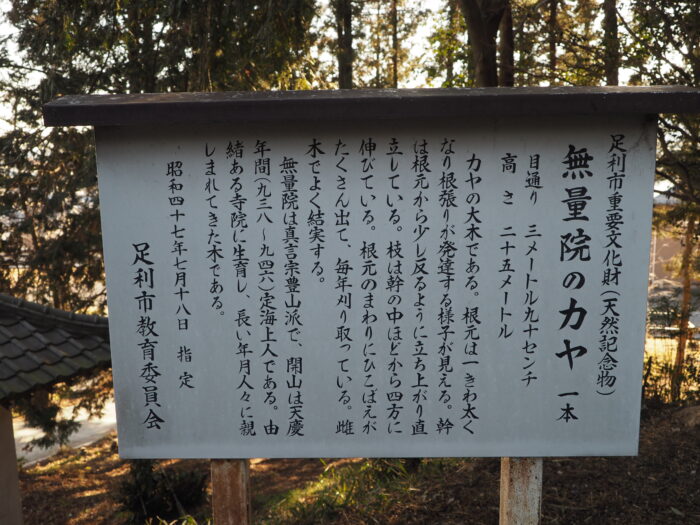 足利市重要文化財(天然記念物)
無量院のカヤ 一本
目通り 三メートル九十センチ
高さ 二十五メートル
カヤの大木である。根元は一きわ太く
なり根張りが発達する様子が見える。幹
は根元から少し反るように立ち上がり直
立している。枝は幹の中ほどから四方に
伸びている。根元のまわりにひこばえが
たくさん出て、毎年刈り取っている。雌
木でよく結実する。
無量院は真言宗豊山派で、開山は天慶
年間(九三八〜九四六)定海上人である。由
緒ある寺院に生育し、長い年月人々に親
しまれてきた木である。
昭和四十七年七月十八日 指定
足利市教育委員会